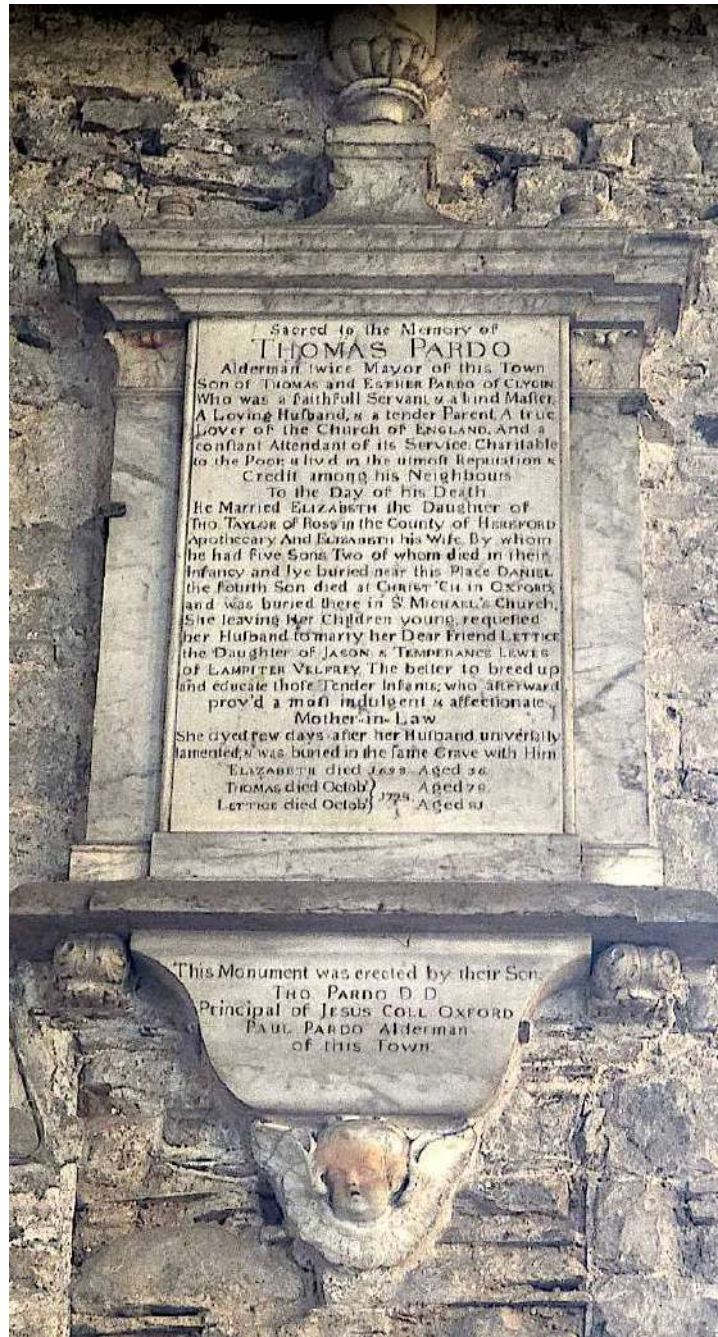 Sacred to the Memory of
THOMAS PARDO
Alderman twice Mayor of this Town
Son of THOMAS and ESTHER PARDO of CLYGIN
Who was a faithfull Servant, & a kind Maſter,
A Loving Huſband, & a tender Parent, A true
Lover of the Church of ENGLAND, And a
conſtant Attendant of its Service, Charitable
to the Poor, & liv'd in the utmoſt Reputation &
Credit among his Neighbours
To the Day of his Death
He Married ELIZABETH the Daughter of
THO. TAYLOR of Ross in the County of HEREFORD
Apothecary And ELISABETH his Wife, By whom
he had Five Sons, Two of whom died in their
Infancy and lye buried near this Place DANIEL
the fourth Son died at CHRIST CH in OXFORD,
and was buried there in St MICHAEL'S Church,
She leaving Her Children young, requeſted
her Huſband to marry her Dear Friend LETTICE
the Daughter of JASON & TEMPERANCE LEWES
of LAMPITER VELFREY, The better to breed up
and educate thoſe Tender Infants; who afterward
prov'd a moſt indulgent & affectionate
Mother-in-Law
She dyed few days after her Huſband univerſally
lamented, & was buried in the ſame Grave with Him
ELIZABETH died 1698 Aged 36
THOMAS died Octobr } Aged 79
LETTICE died Octobr } Aged 81
This Monument was erected by their Son
THO PARDO D D
Principal of JESUS COLL OXFORD
PAUL PARDO Alderman
of this Town.